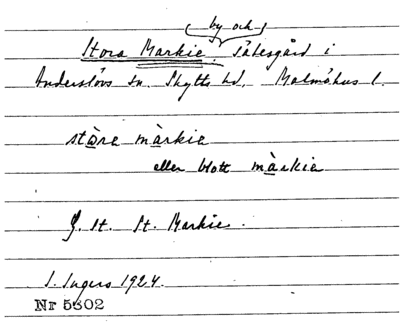 by och
Stora Markie. Sätesgård i
Anderslövs sn. Skytts hd. Malmöhus l.
stòra màrkia
eller blott màrkia
G. st. St. Markie.
I. Ingers 1924.
Nr 5302